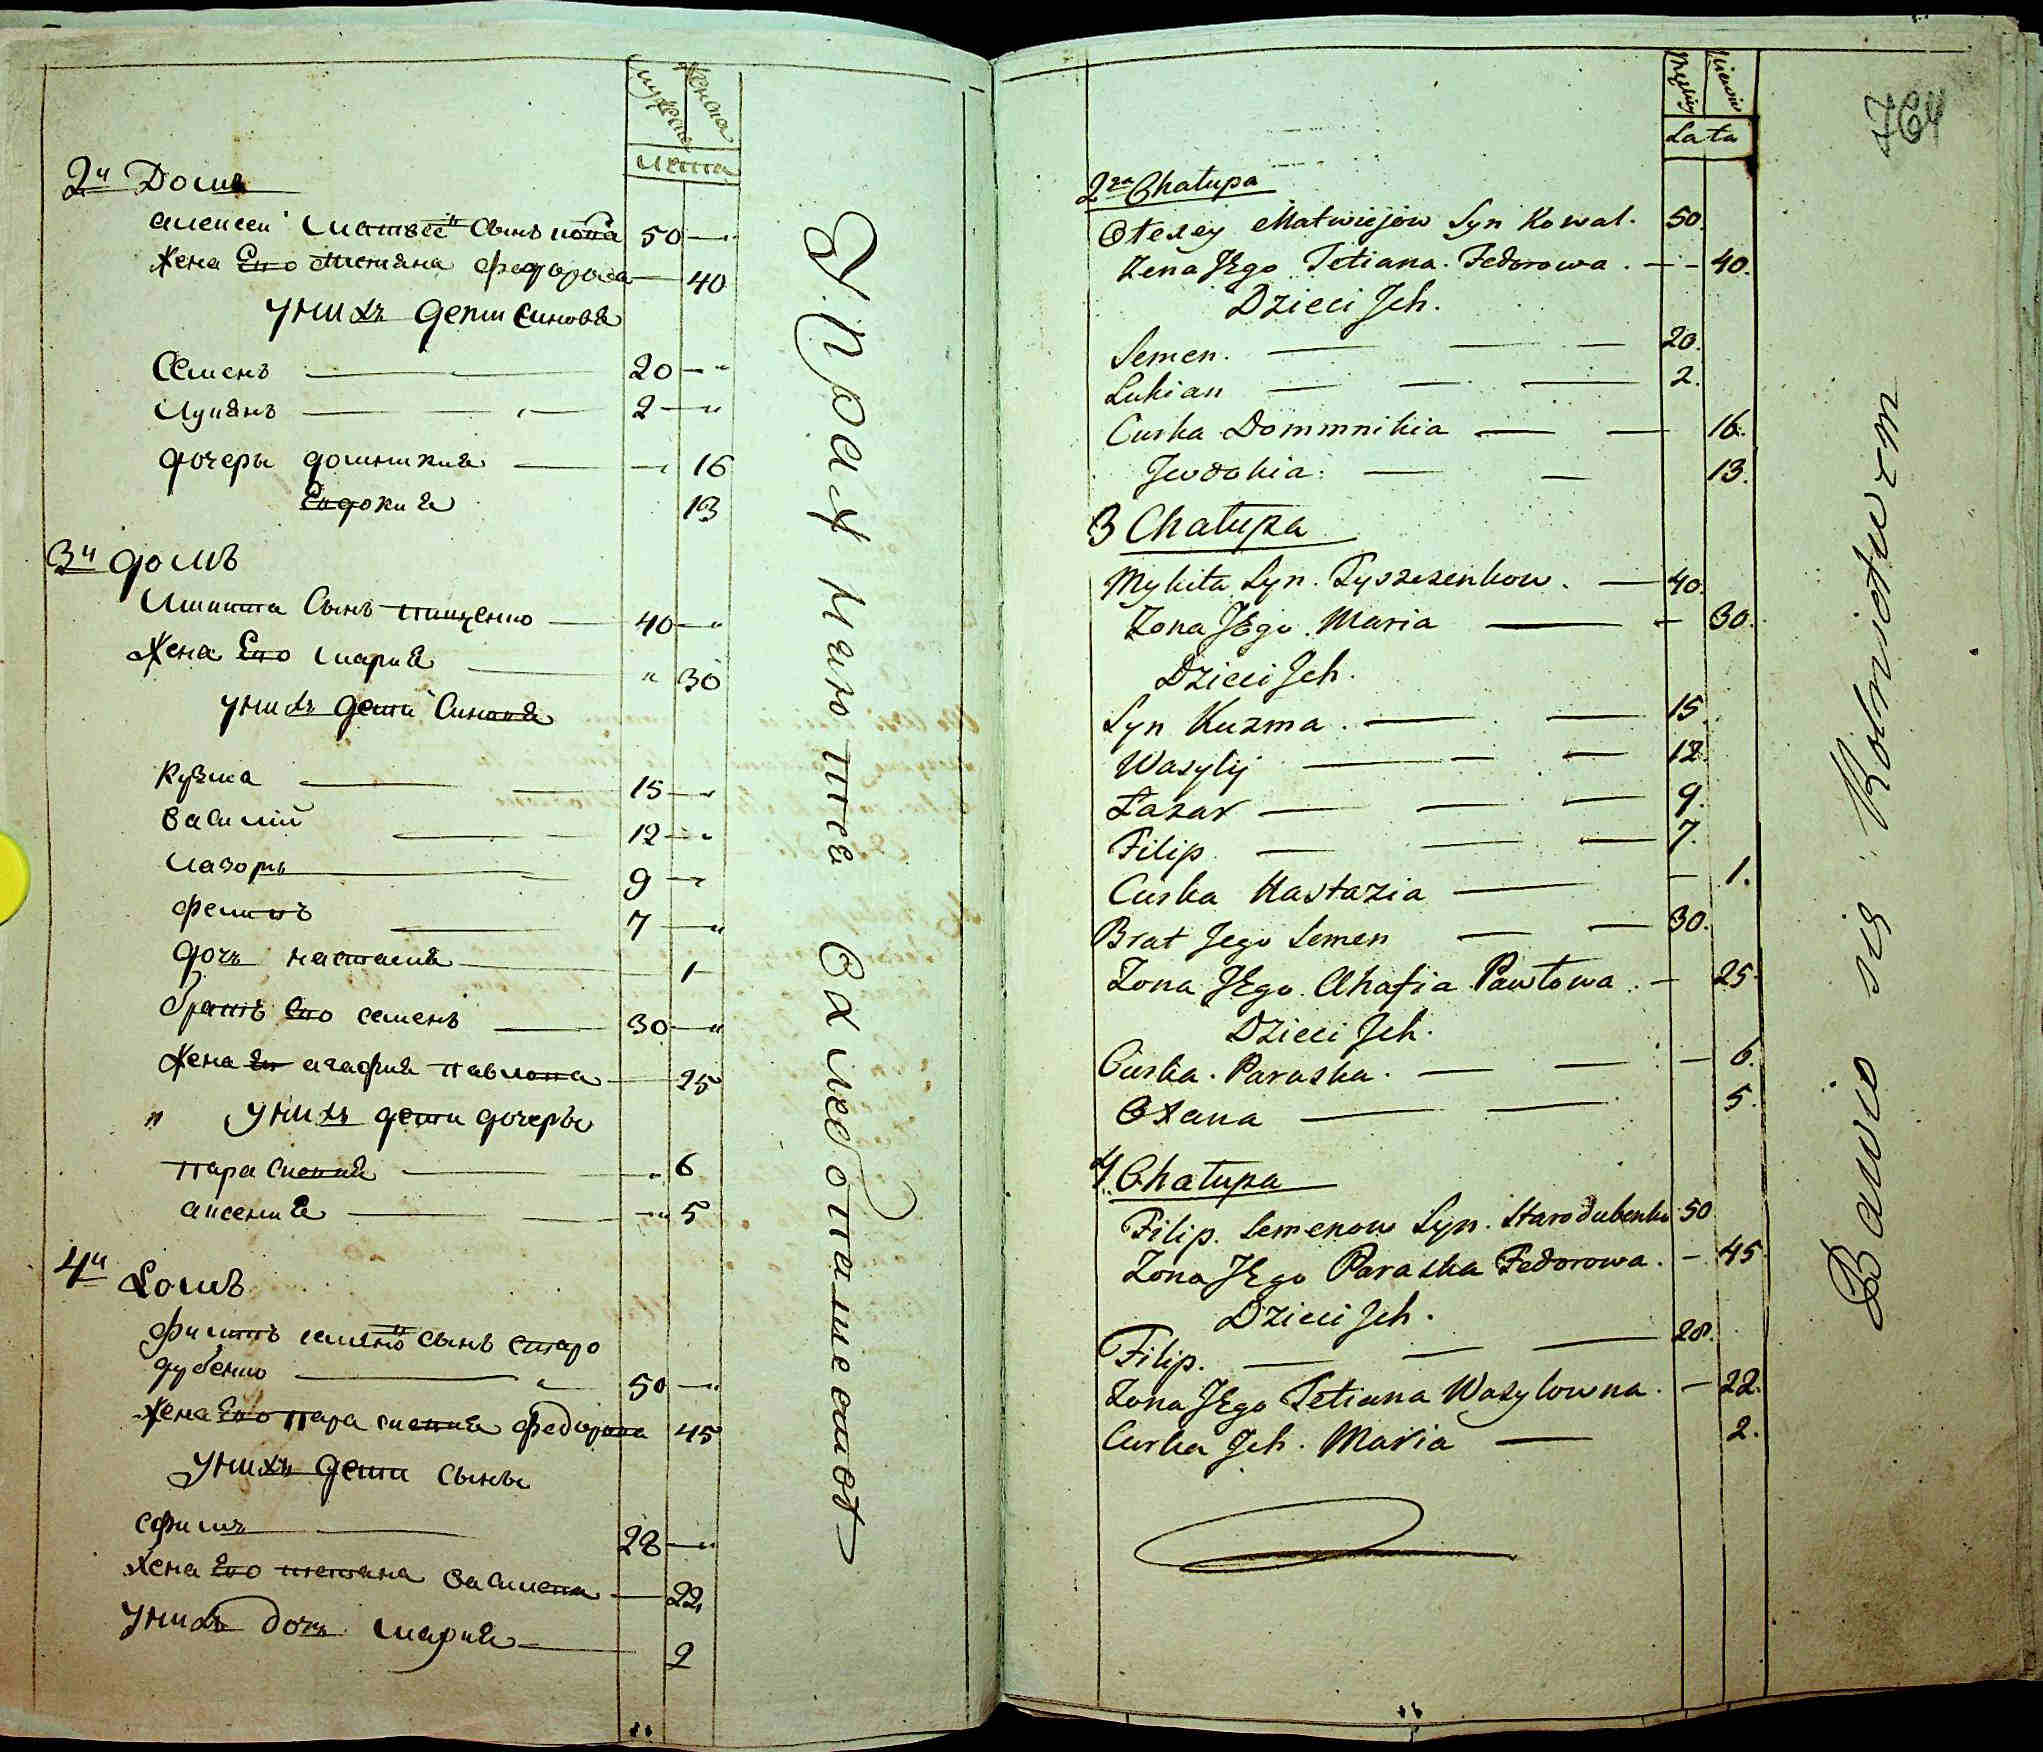 мужеска
женска
лета
2й Домъ
алексей Матвеев сынъ коваль 50
Жена Его Татияна Федорова 40
У них дети синовя
Семенъ 20
Лукянъ 2
дочеры домникия 16
Евдокия 13
3й домъ
Микита Сынъ тищенко 40
Жена Его мария 30
У них дети Синовя
Кузма 15
Василий 12
Лазорь 9
филипъ 7
дочь настасия 1
братъ Его семенъ 30
Жена Его агафия павлова 25
" У них дети дочеры
параскевия 6
аксения 5
4й Домъ
филипъ семенов сынъ старо
дубенко 50
Жена Его параскевия федорова 45
У нихъ дети сыны
ефимъ 28
Жена Его татияна Василева 22
У них дочь мария 2
Упражняются в хлебопашестве
764
Męskiej
Lata
2ga Chałupa
Ołexey Matwiejow Syn Kowal. 50.
Żena JEgo Tetiana Fedorowa. 40.
Dzieci Jch.
Semen. 20.
Lukian 2.
Curka Dommnikia 16.
Jewdokia. 13.
3 Chałupa
Mykita Syn. Tyszczenkow. 40.
Żona JEgo Maria 30.
Dzieci Jch.
Syn Kuzma. 15
Wasylij 12
Łazar 9.
Filip 7.
Curka Nastazia 1.
Brat Jego Semen 30.
Żona JEgo Ahafia Pawłowa. 25.
Dzieci Jch.
Curka. Paraska. 6.
Oxana 5.
4. Chałupa
Filip. Semenow Syn. Starodubenko 50
Żona JEgo Paraska Fedorowa. 45
Dzieci Jch.
Filip. 28.
Żona JEgo Tetiana Wasylowna. 22.
Curka Jch. Maria 2.
Bawio się Rolnictwem